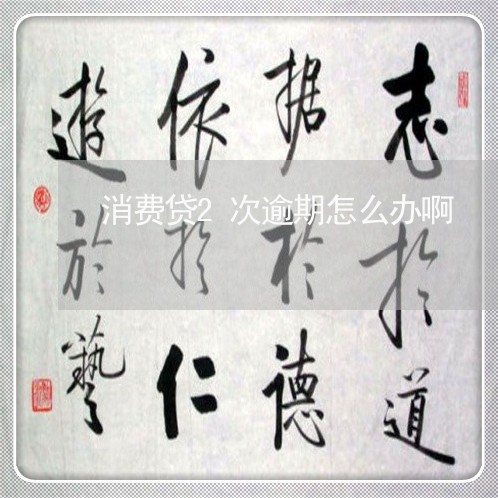 志於道
据於德
依於仁
遊於藝
消费贷2 次逾期怎么办啊